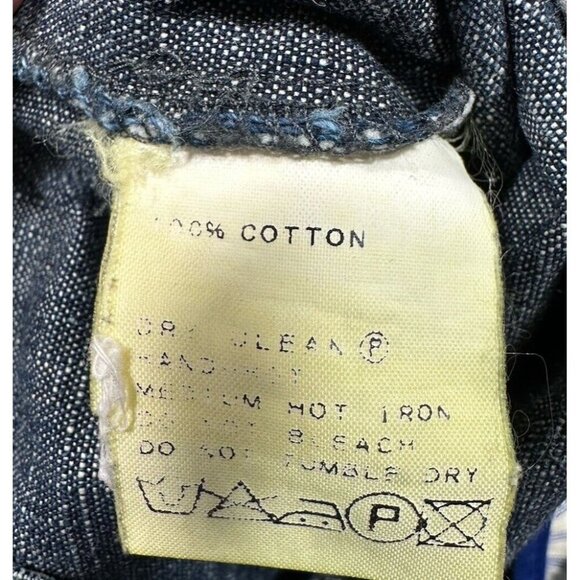 100% COTTON
DRY CLEAN Ⓟ
HANDWASH
MEDIUM HOT IRON
DO NOT BLEACH
DO NOT TUMBLE DRY
P